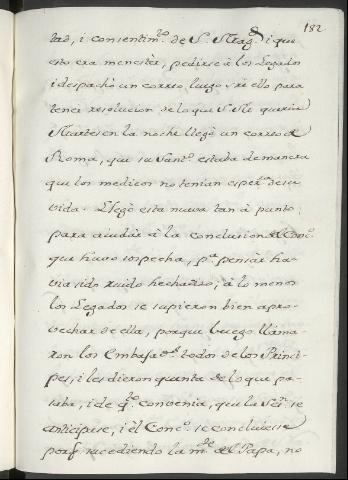 182
tad, i consentim.to de S. Mag.d i que
esto era menester, pedirse à los Legados
i despachò un correo luego sre ello para
tener resolucion de lo que S. M. queria
Martes en la noche llegò un correo de
Roma, que su Sant.d estaba de manera
que los medicos no tenian esper.za de su
vida. Llegò esta nueva tan à punto
para aiudar à la conclusion del Conc.o
que huvo sospecha, p.a pensar ha-
via sido ruido hechadizo; à lo menos
los Legados se supieron bien apro-
vechar de ella, porque luego llama-
ron los Embajad.es todos de los Princi-
pes, i les dieron quenta de lo que pa-
saba, i de q.to convenia, que la Ses.n se
anticipase, i el Conc.o se concluiese
porq.e sucediendo la m.te del Papa, no